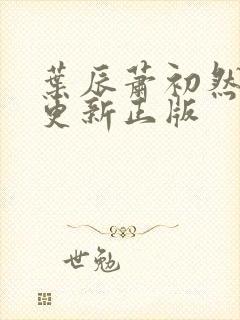 葉辰蕭初然
更新正版
世勉